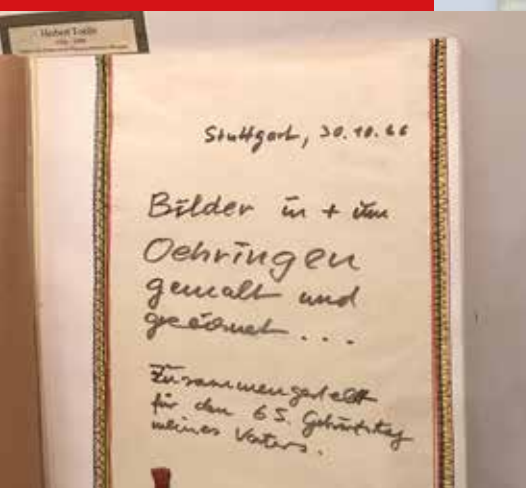 Stuttgart, 30.10.66
Bilder in + um
Oehringen
gemalt und
geeicnet . . .
Zusammengestellt
für den 65. Geburtstag
meines Vaters.